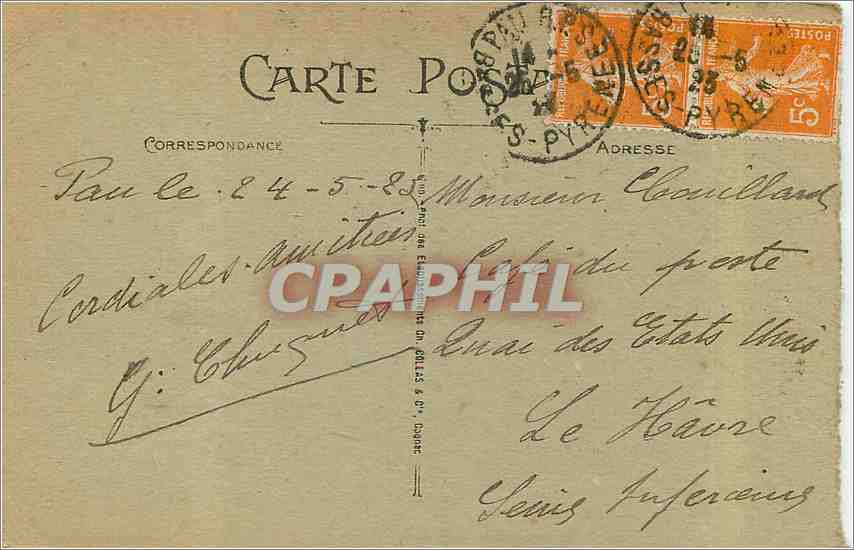 CARTE POSTALE
CORRESPONDANCE
ADRESSE
PAU R.P.
BASSES-PYRENEES
24 -5
23
BASSES-PYRENEES
14
25 -5
23
POSTES
5c
Pau le 24-5-23
Cordiales amitiés
Monsieur Couillard
Café du poste
Quai des Etats Unis
Le Hâvre
Seine Inférieure
des Etablissements Ch. COLLAS & Cie, Cognac
CPAPHIL